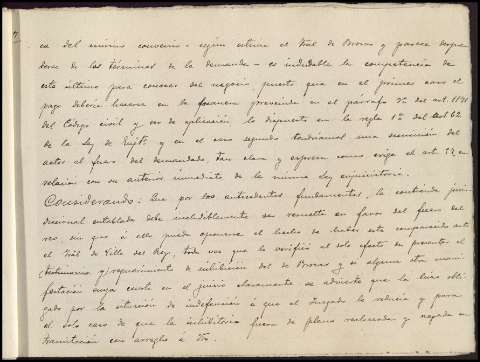 ca del mismo convenio - según estima el Tral de Brozas y parece despren
derse de los términos de la demanda - es indudable la competencia de
este último para conocer del negocio, puesto que en el primer caso el
pago debería hacerse en la forma prevenida en el párrafo 2º del art. 1171
del Código civil y son de aplicación lo dispuesto en la regla 1ª del Art 62
de la Ley de Enjto y en el caso segundo tendríamos una sumisión del
actor al fuero del demandado tan clara y expresa como exige el art. en
relación con su anterior inmediato de la misma Ley enjuiciatoria.
Considerando: Que por los antecedentes fundamentos, la contienda juris
diccional entablada debe ineludiblemente ser resuelta en favor del fuero del
reo, sin que á ello pueda oponerse el hecho de haber este comparecido ante
el Tral de Villa del Rey, toda vez que lo verificó al solo efecto de presentar el
(testimonio y) requerimiento de inhibición del de Brozas y si alguna otra mani
festación suya consta en el juicio claramente se advierte que la hizo obli
gado por la situación de indefensión á que el Juzgado le reducía y para
el solo caso de que la inhibitoria fuera de plano rechazada y negada su
tramitación con arreglo á